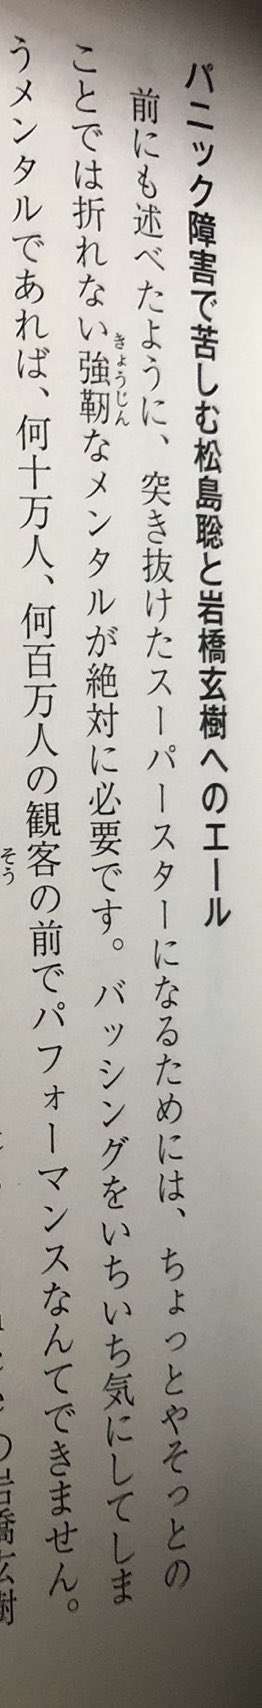 パニック障害で苦しむ松島聡と岩橋玄樹へのエール
前にも述べたように、突き抜けたスーパースターになるためには、ちょっとやそっとの
ことでは折れない強靭なメンタルが絶対に必要です。バッシングをいちいち気にしてしま
きょうじん
うメンタルであれば、何十万人、何百万人の観客の前でパフォーマンスなんてできません。
そう
の岩橋玄樹